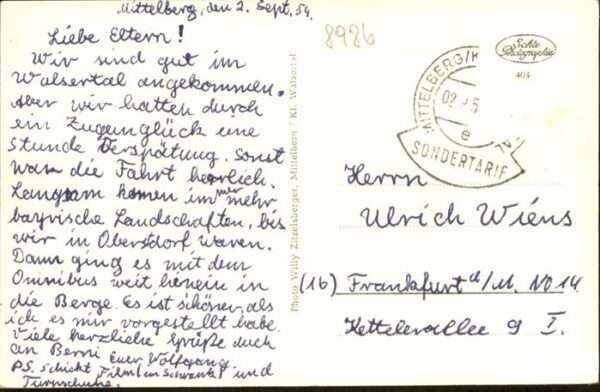 Mittelberg, den 2. Sept. 54.
Liebe Eltern!
Wir sind gut im
Walsertal angekommen.
Aber wir hatten durch
ein Zugenglück eine
Stunde Verspätung. Sonst
war die Fahrt herrlich.
Langsam kamen immer mehr
bayrische Landschaften, bis
wir in Oberstdorf waren.
Dann ging es mit dem
Omnibus weit herein in
die Berge. Es ist schöner, als
ich es mir vorgestellt habe.
Viele herzliche Grüße auch
an Berni Euer Wolfgang.
P.S. Schickt Film (im Schrank) und
Turnschuhe.
8986
Photo Willy Zitzelsberger, Mittelberg / Kl. Walsertal
MITTELBERG/K
02.9.5
e
SONDERTARIF
Echte
Photographie
404
Herrn
Ulrich Wiens
(16) Frankfurt a/M. NO 14
Kettelerallee 9 I.